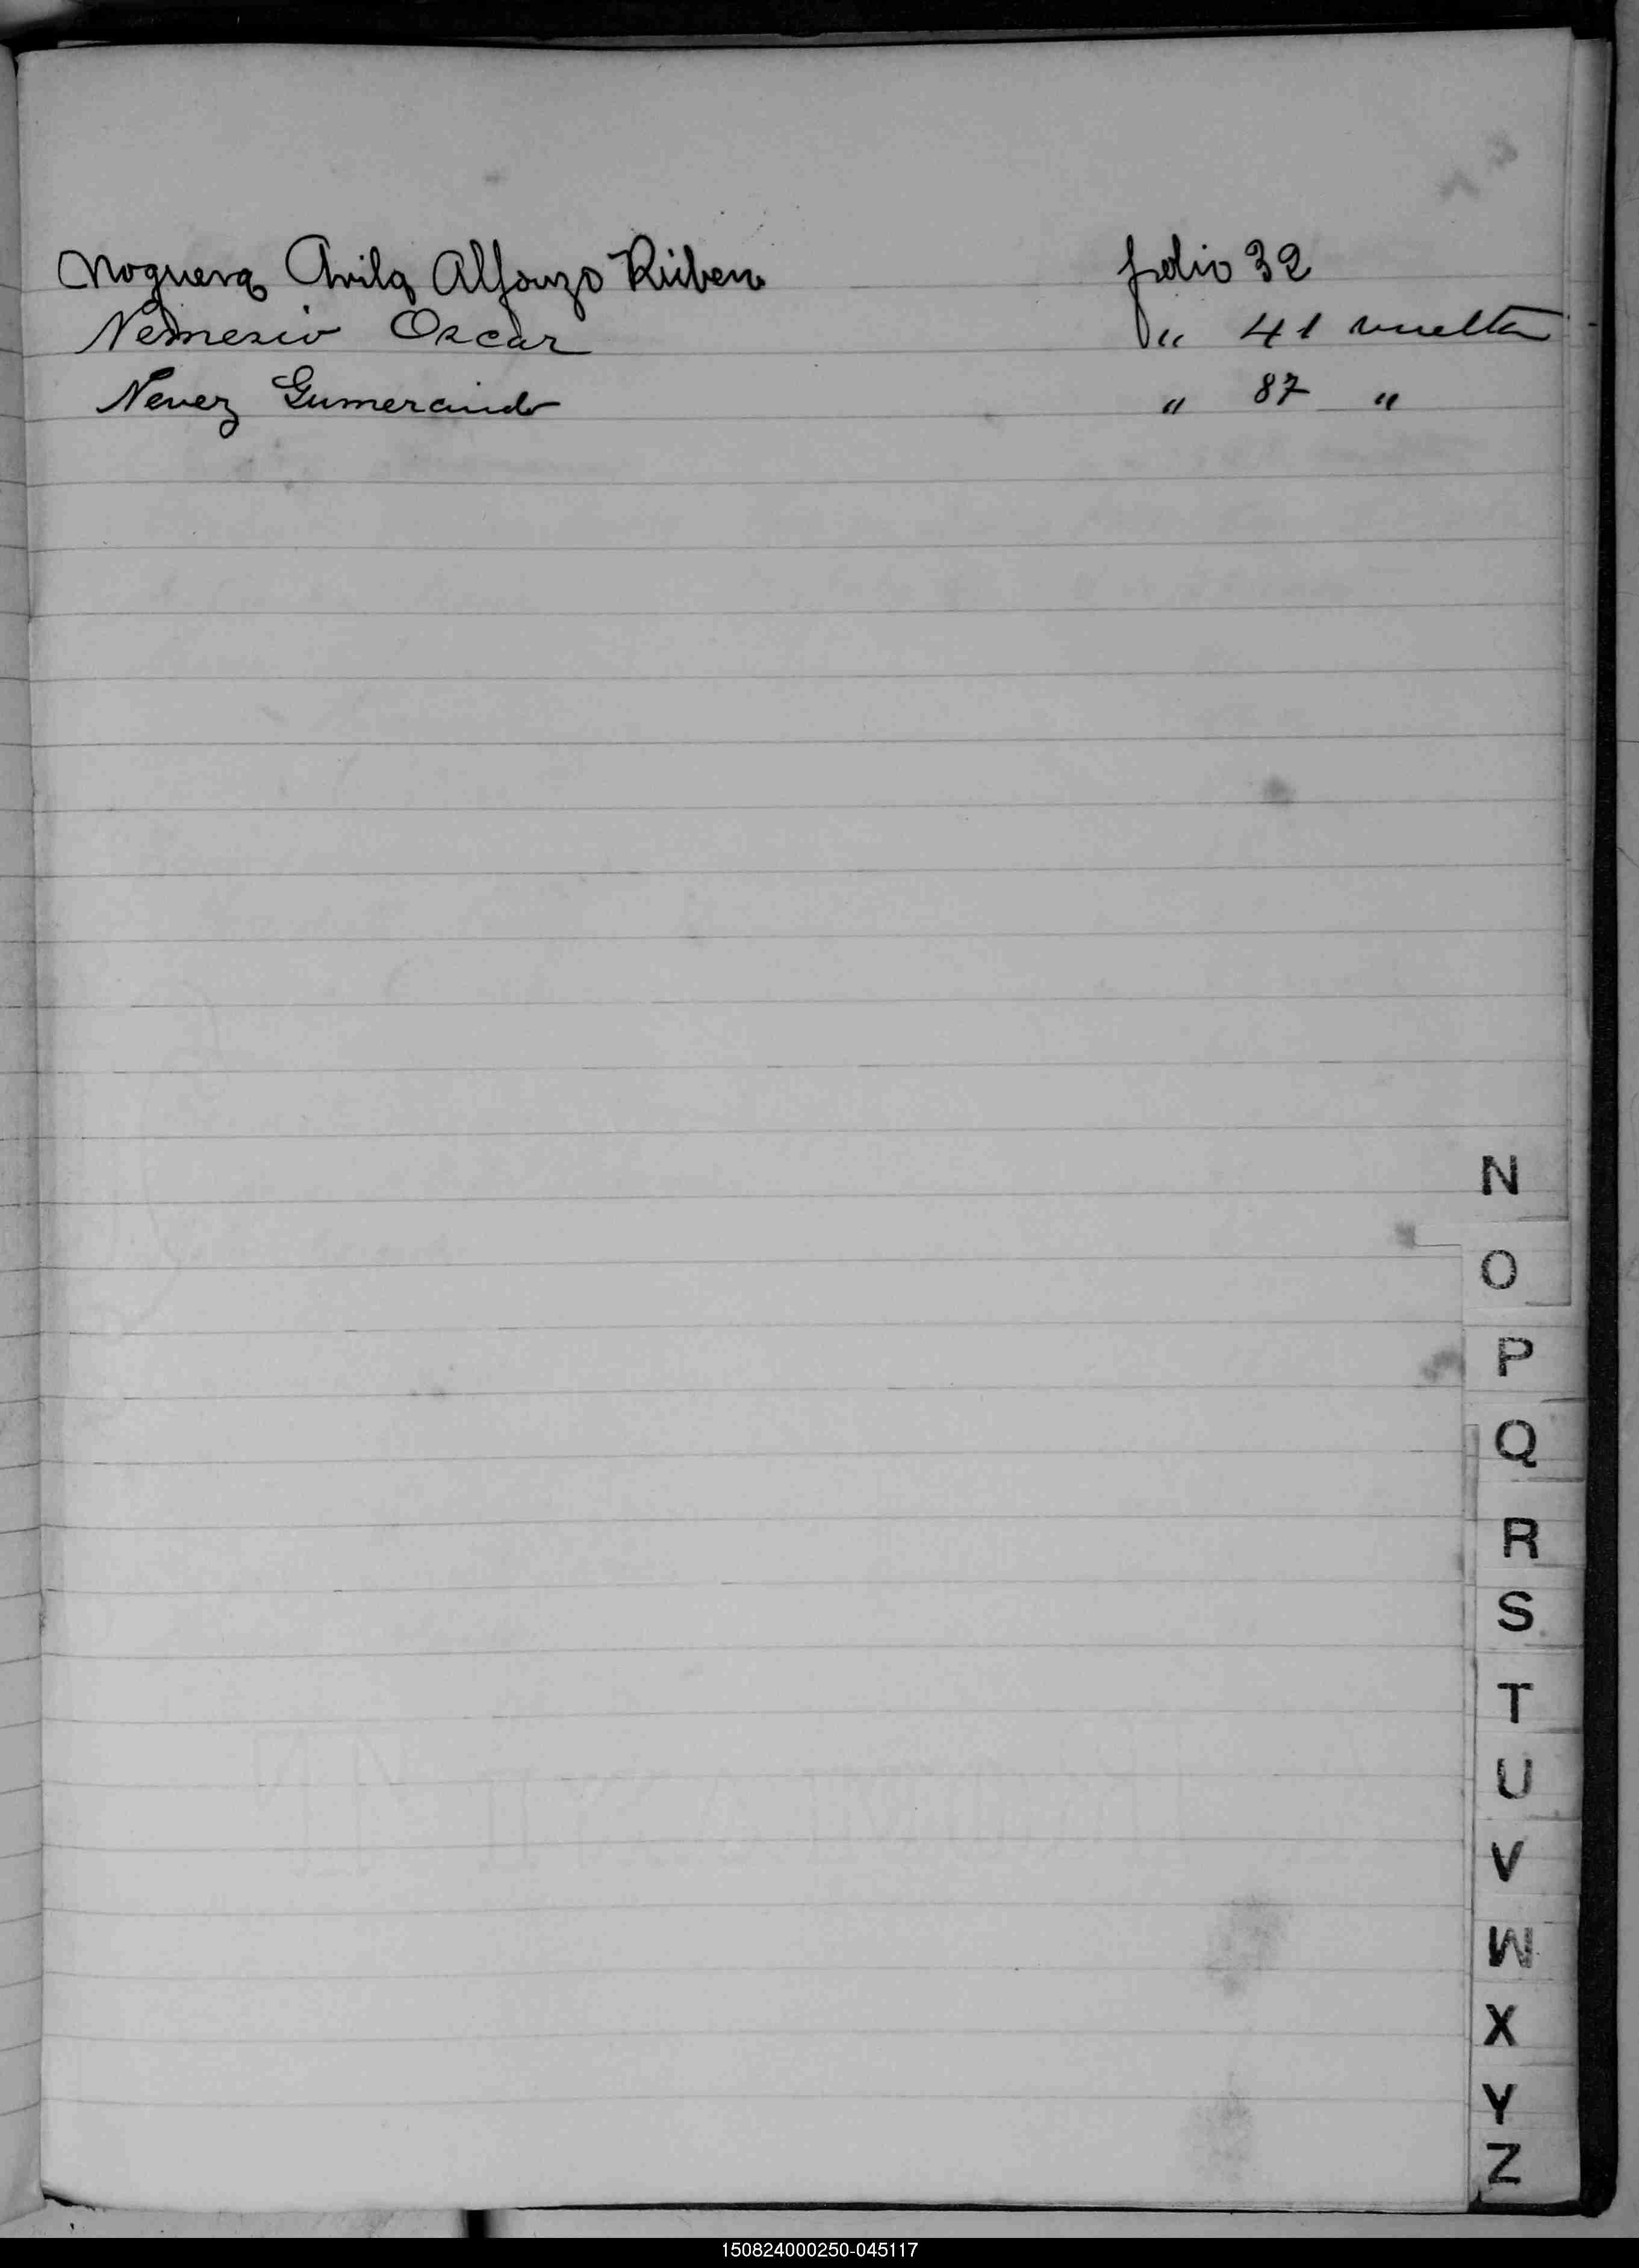 Noguera Avila Alfonzo Rúben folio 32
Nemesio Oscar " 41 vuelta
Nevez Gumersindo " 87 "
N
O
P
Q
R
S
T
U
V
W
X
Y
Z
150824000250-045117